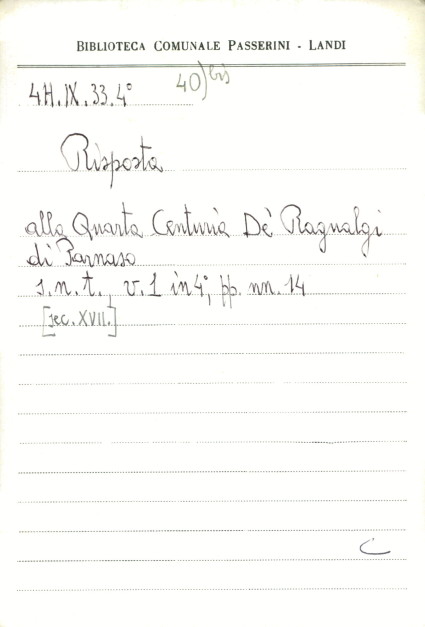 BIBLIOTECA COMUNALE PASSERINI - LANDI
4H.IX.33.4° 40) bis
Risposta
alla Quarta Centuria De' Ragualgi
di Parnaso
s.n.t., v.1 in 4°, pp. nn. 14
[sec. XVII.]
C